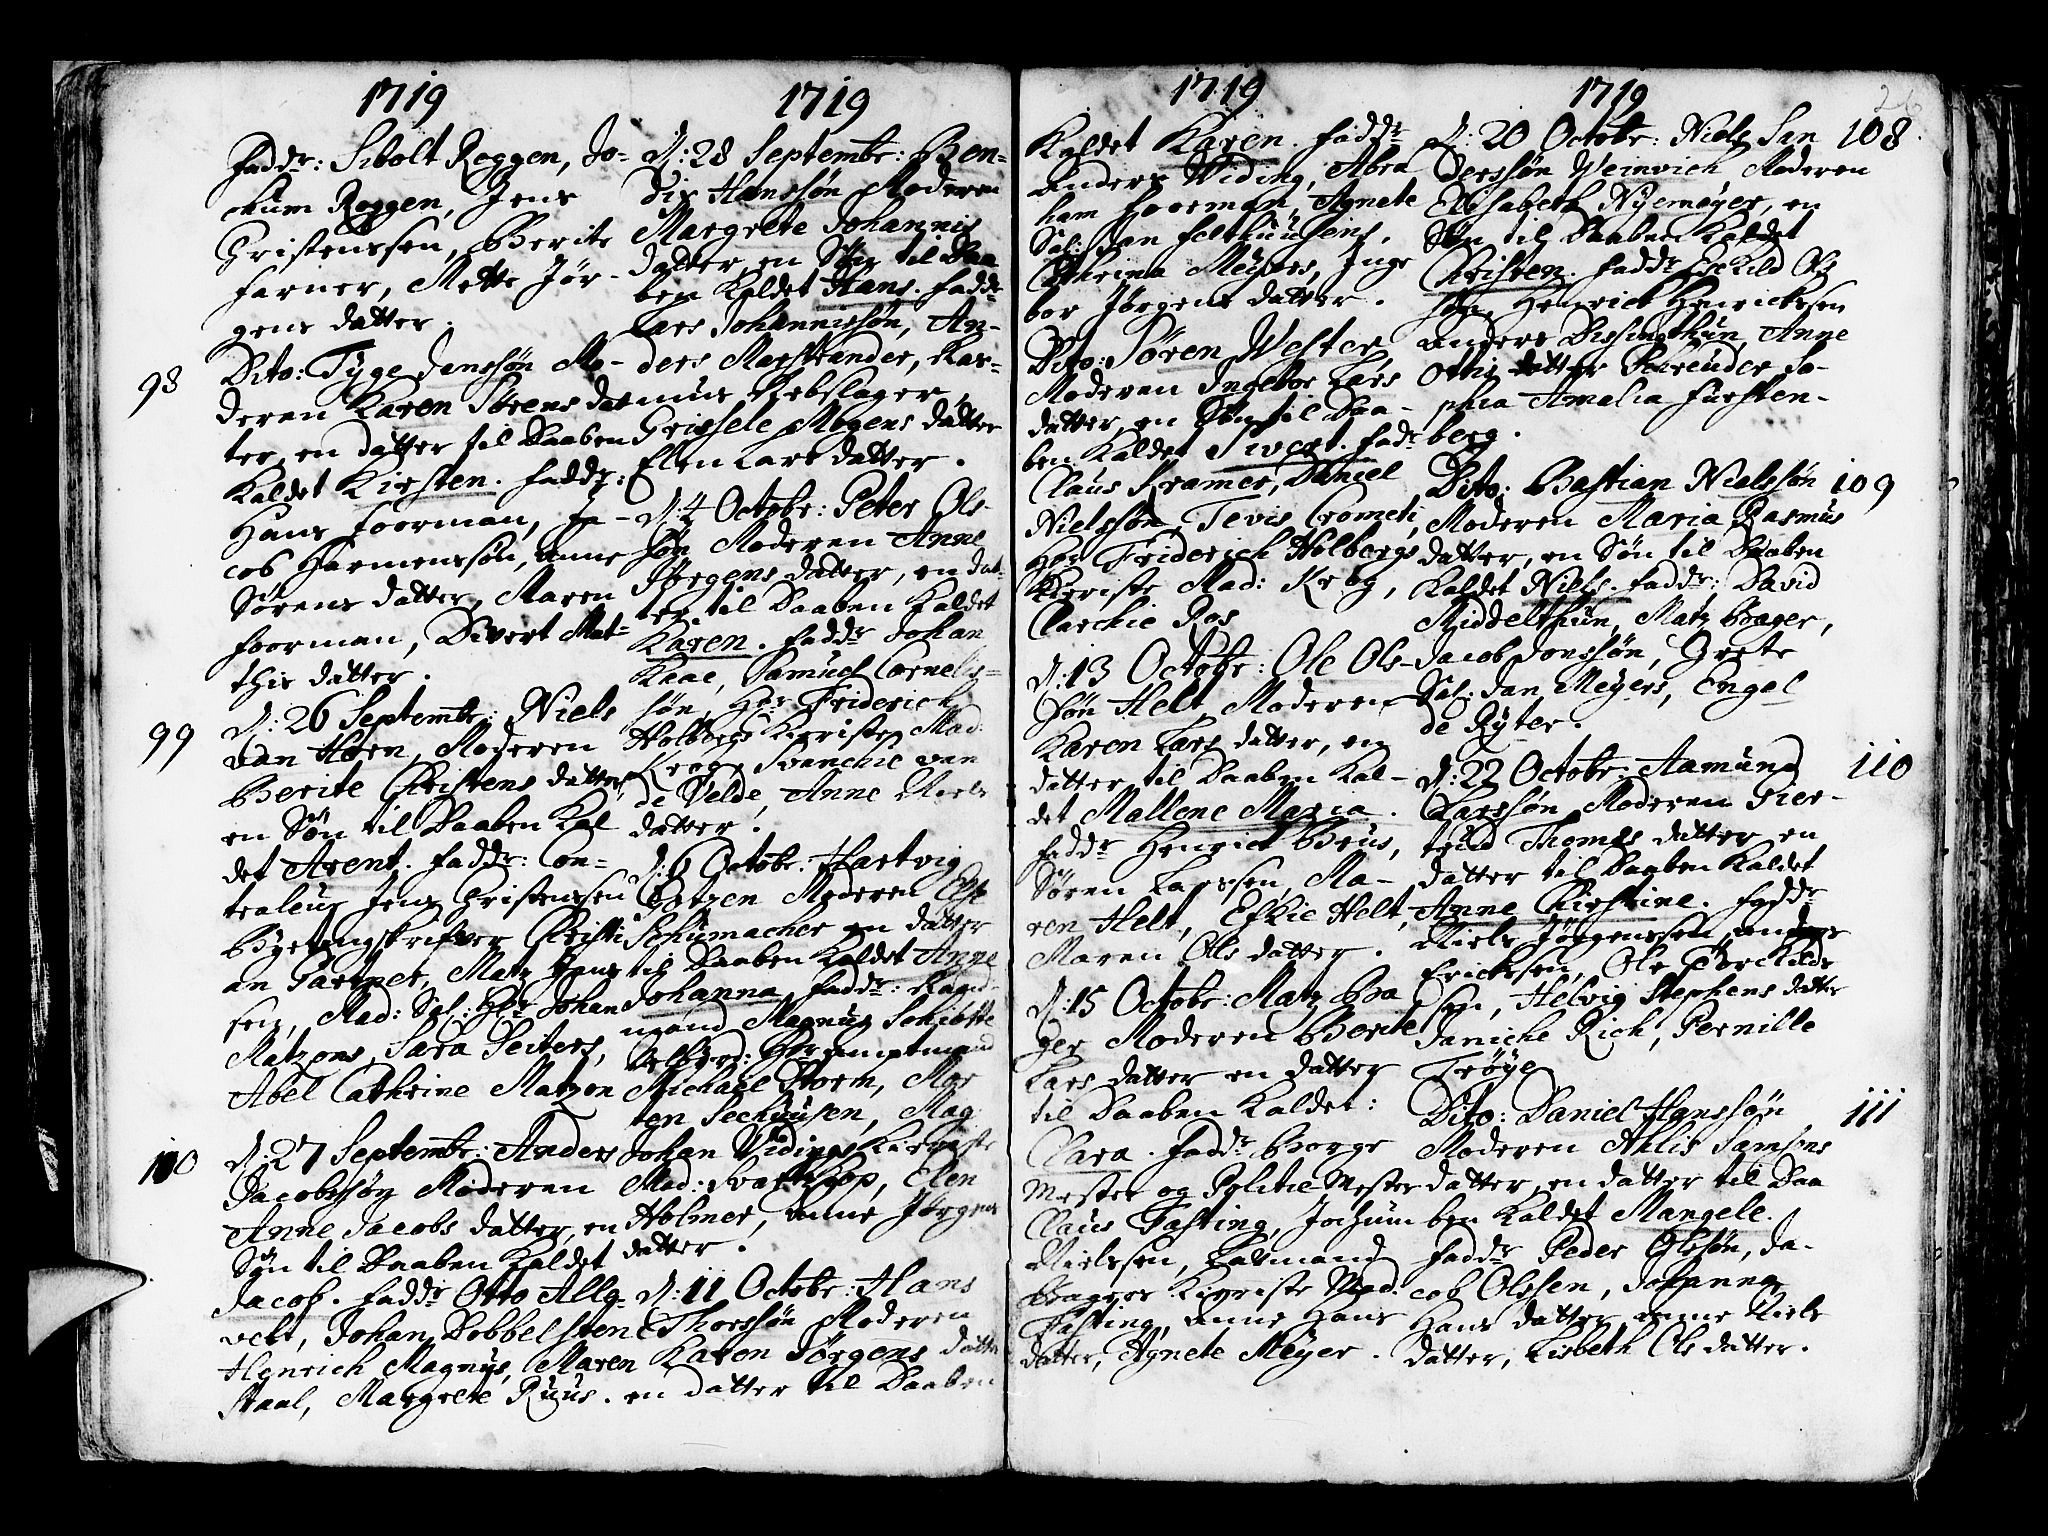 1719
Fadd: Sibolt Roggen, Jo-
chum Roggen, Jens
Christenssen, Berite
Farner, Mette Jør-
gens datter.
98
Dito: Tyge Jenssøn Mo-
deren Karen Sørens dat-
ter, en datter til Daaben
Kaldet Kirsten. Fadd:
Hans Foorman, Ja-
cob Harmenssøn, Anne
Sørens datter, Maren
Foorman, Divert Mat-
this datter.
99
d: 26 Septembr: Niels
van Hoen, Moderen
Berite Christens datter
en Søn til Daaben Kal
det Arent. Fadd: Con-
traleur Jens Christenssen
Byetingskrifver Christi
an Partner, Matz Hans
sen, Mad: Sal: Hr Johan
Matzons, Sara Seiters,
Abel Cathrine Matzon
100
d: 27 Septembr: Anders
Jacobssøn Moderen
Anne Jacobs datter, en
Søn til Daaben Kaldet
Jacob. Fadd: Otto Allg-
velt, Johan Dobbelsteen
Henrich Magnus, Maren
Staal, Margrete Ruus.
1719
d: 28 Septembr: Ben-
dix Hanssøn Moderen
Margrete Johannis
datter, en Søn til Daa
ben Kaldet Hans. Fadd:
Lars Johannissøn, An-
ders Marstrander, Ras-
mus Rebslager,
Grissele Mogens datter
Elen Lars datter.
d: 4 Octobr: Peter Ols
søn Moderen Anne
Jørgens datter, en dat-
ter til Daaben Kaldet
Karen. Fadd: Johan
Kaae, Samuel Cornelis-
søn, Her Friderich
Holbergs Kieriste, Mad:
Krog, Svanchie van
de Velde, Anne Niels
datter.
d: 6 Octobr: Hartvig
Gotzen Moderen Else
Schumacher en datter
til Daaben Kaldet Anne
Johanna, Fadd:
Magnus Schiøtte
Michael Storm, Mor
ten Seehuusen, Mag:
Johan Vidings Kieriste
Mad: Svartskop, Elen
Holmer, Anne Jørgens
datter.
d: 11 Octobr: Hans
Thorssøn Moderen
Karen Jørgens datter
en datter til Daaben
1719
Kaldet Karen. Fadd:
Anders Widing, Abra
ham Foorman, Agnete
Sal: Jan Felthuusens,
Cathrina Meyers, Inge
bor Jørgens datter.
Dito: Søren Wester,
Moderen Ingebor Lars
datter, en Søn til Daa-
ben Kaldet Sivert. Fad:
Claus Kramer, Daniel
Nielssøn, Tevis Cometi,
Her Friderich Holbergs
Kieriste Mad: Krog,
Clarchie Ros
d: 13 Octobr: Ole Ols-
søn Helt, Moderen
Karen Lars datter, en
datter til Daaben Kal-
det Mallene Maria.
Fadd: Henrich Brus,
Søren Larssen, Ma-
ren Helt, Efkie Helt,
Maren Ols datter.
d: 15 Octobr: Matz Ba
ger Moderen Berite
Lars datter en datter
til Daaben Kaldet:
Clara. Fadd: Borge
Mester og Politie Mester
Claus Fasting, Jochum
Nielssen, Raadmand
Bagers Kieriste Mad:
Fasting, Anne Hans
datter, Agnete Meyer.
1719
26
108
d: 20 Octobr: Niels San
derssøn Weinrich Moderen
Elisabeth Nyemeyer, en
Søn til Daaben Kaldet
Christen. Fadd: Eskild Ols
søn, Henrich Henrickssen
Anders Dissingthun, Anne
Otthis datter Schreuder, So-
phia Amalia Fursten-
berg.
109
Dito: Bastian Nielssøn
Moderen Maria Rasmus
datter, en Søn til Daaben
Kaldet Niels. Fadd: David
Middelthun, Matz Bager,
Jacob Jonssøn, Grete
Sal: Jan Meyers, Engel
de Ryter.
110
d: 22 Octobr: Aamund
Larssøn Moderen Gier-
trud Thomes datter en
datter til Daaben Kaldet
Anne Christine. Fadd:
Niels Jørgenssen, Anders
Erickssen, Ole Torkilds
sen, Helvig Stephens datter
Janiche Rich, Pernille
Trøye
111
Dito: Daniel Hanssøn
Moderen Ahlis Samsons
datter, en datter til Daa
ben Kaldet Mangele.
Fadd: Peder Olssøn, Ja-
cob Olssen, Johanna
Hans datter, Anne Niels
datter, Lisbeth Ols datter.